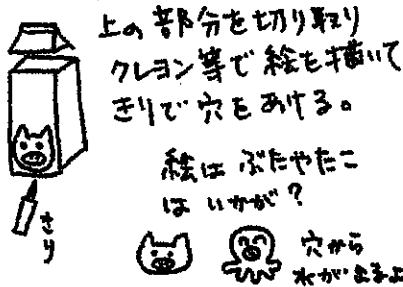 上の部分を切り取り
クレヨン等で絵を描いて
きりで穴をあける。
絵は ぶたやたこ
は いかが?
きり
穴から
水が出ますよ